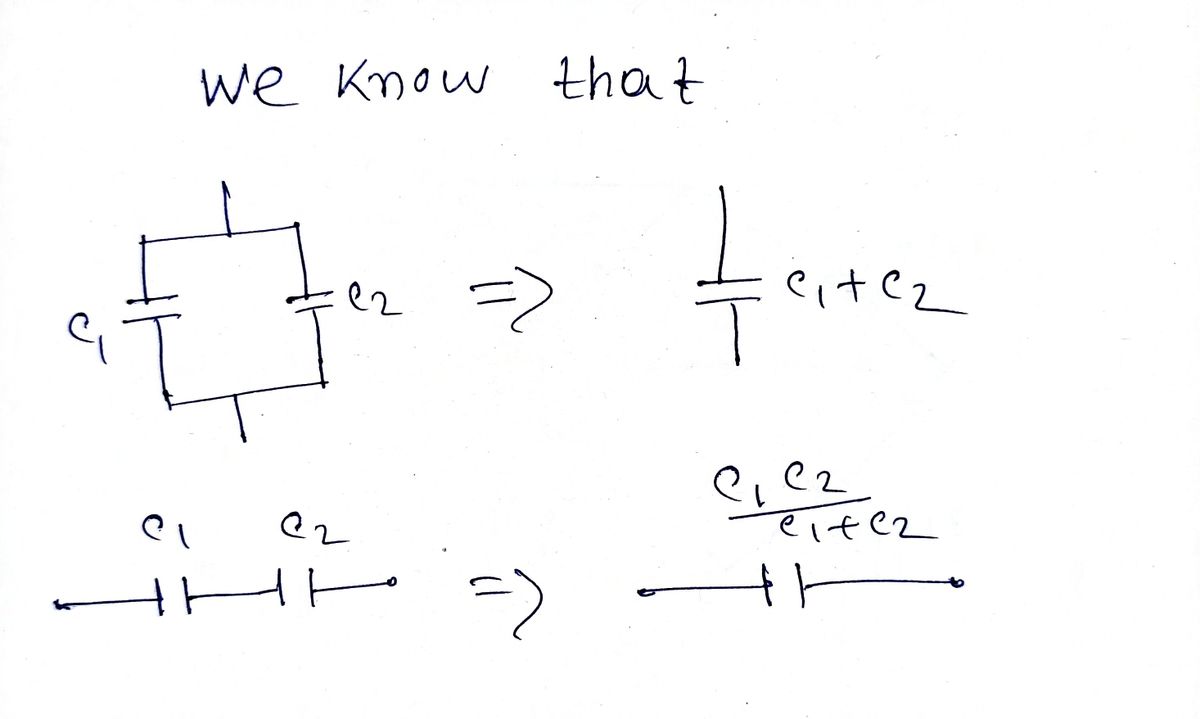 We Know that
C1 C2 => C1+C2
C1 C2 => C1 C2 / C1+C2